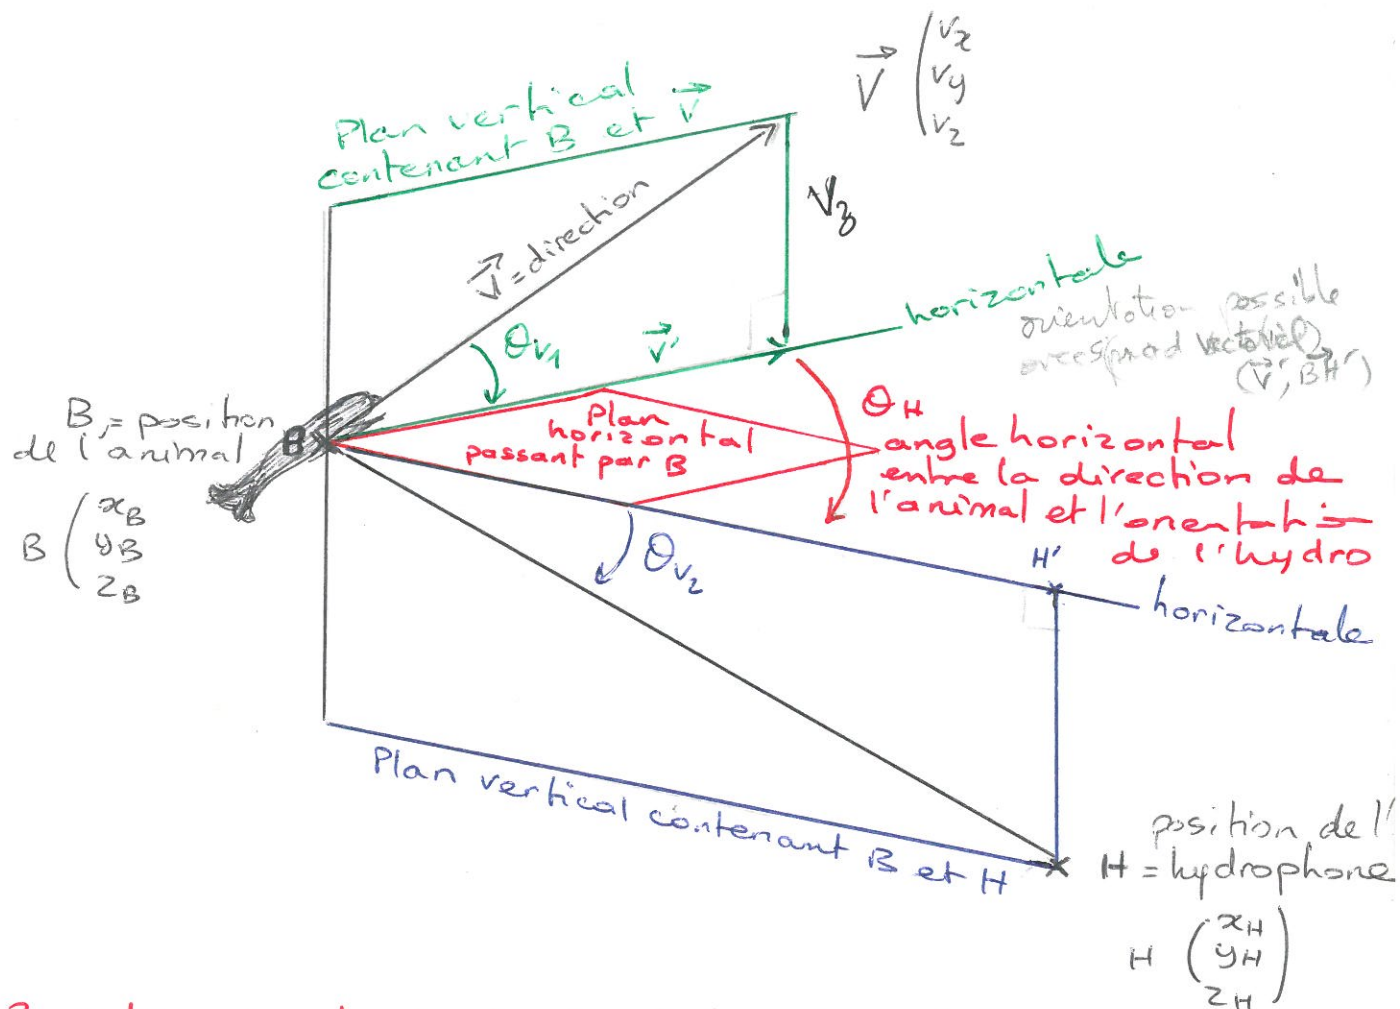 V⃗ ( vx
vy
vz
Plan vertical
contenant B et V⃗
V⃗ = direction
Vz
θv1
v⃗'
horizontale
orientation possible
vectoriel
(V⃗', BH⃗')
B = position
de l'animal
B
B ( xB
yB
zB
Plan
horizontal
passant par B
θH
angle horizontal
entre la direction de
l'animal et l'orientation
de l'hydro
θv2
H'
horizontale
Plan vertical contenant B et H
position de l'
H = hydrophone
H ( xH
yH
zH )